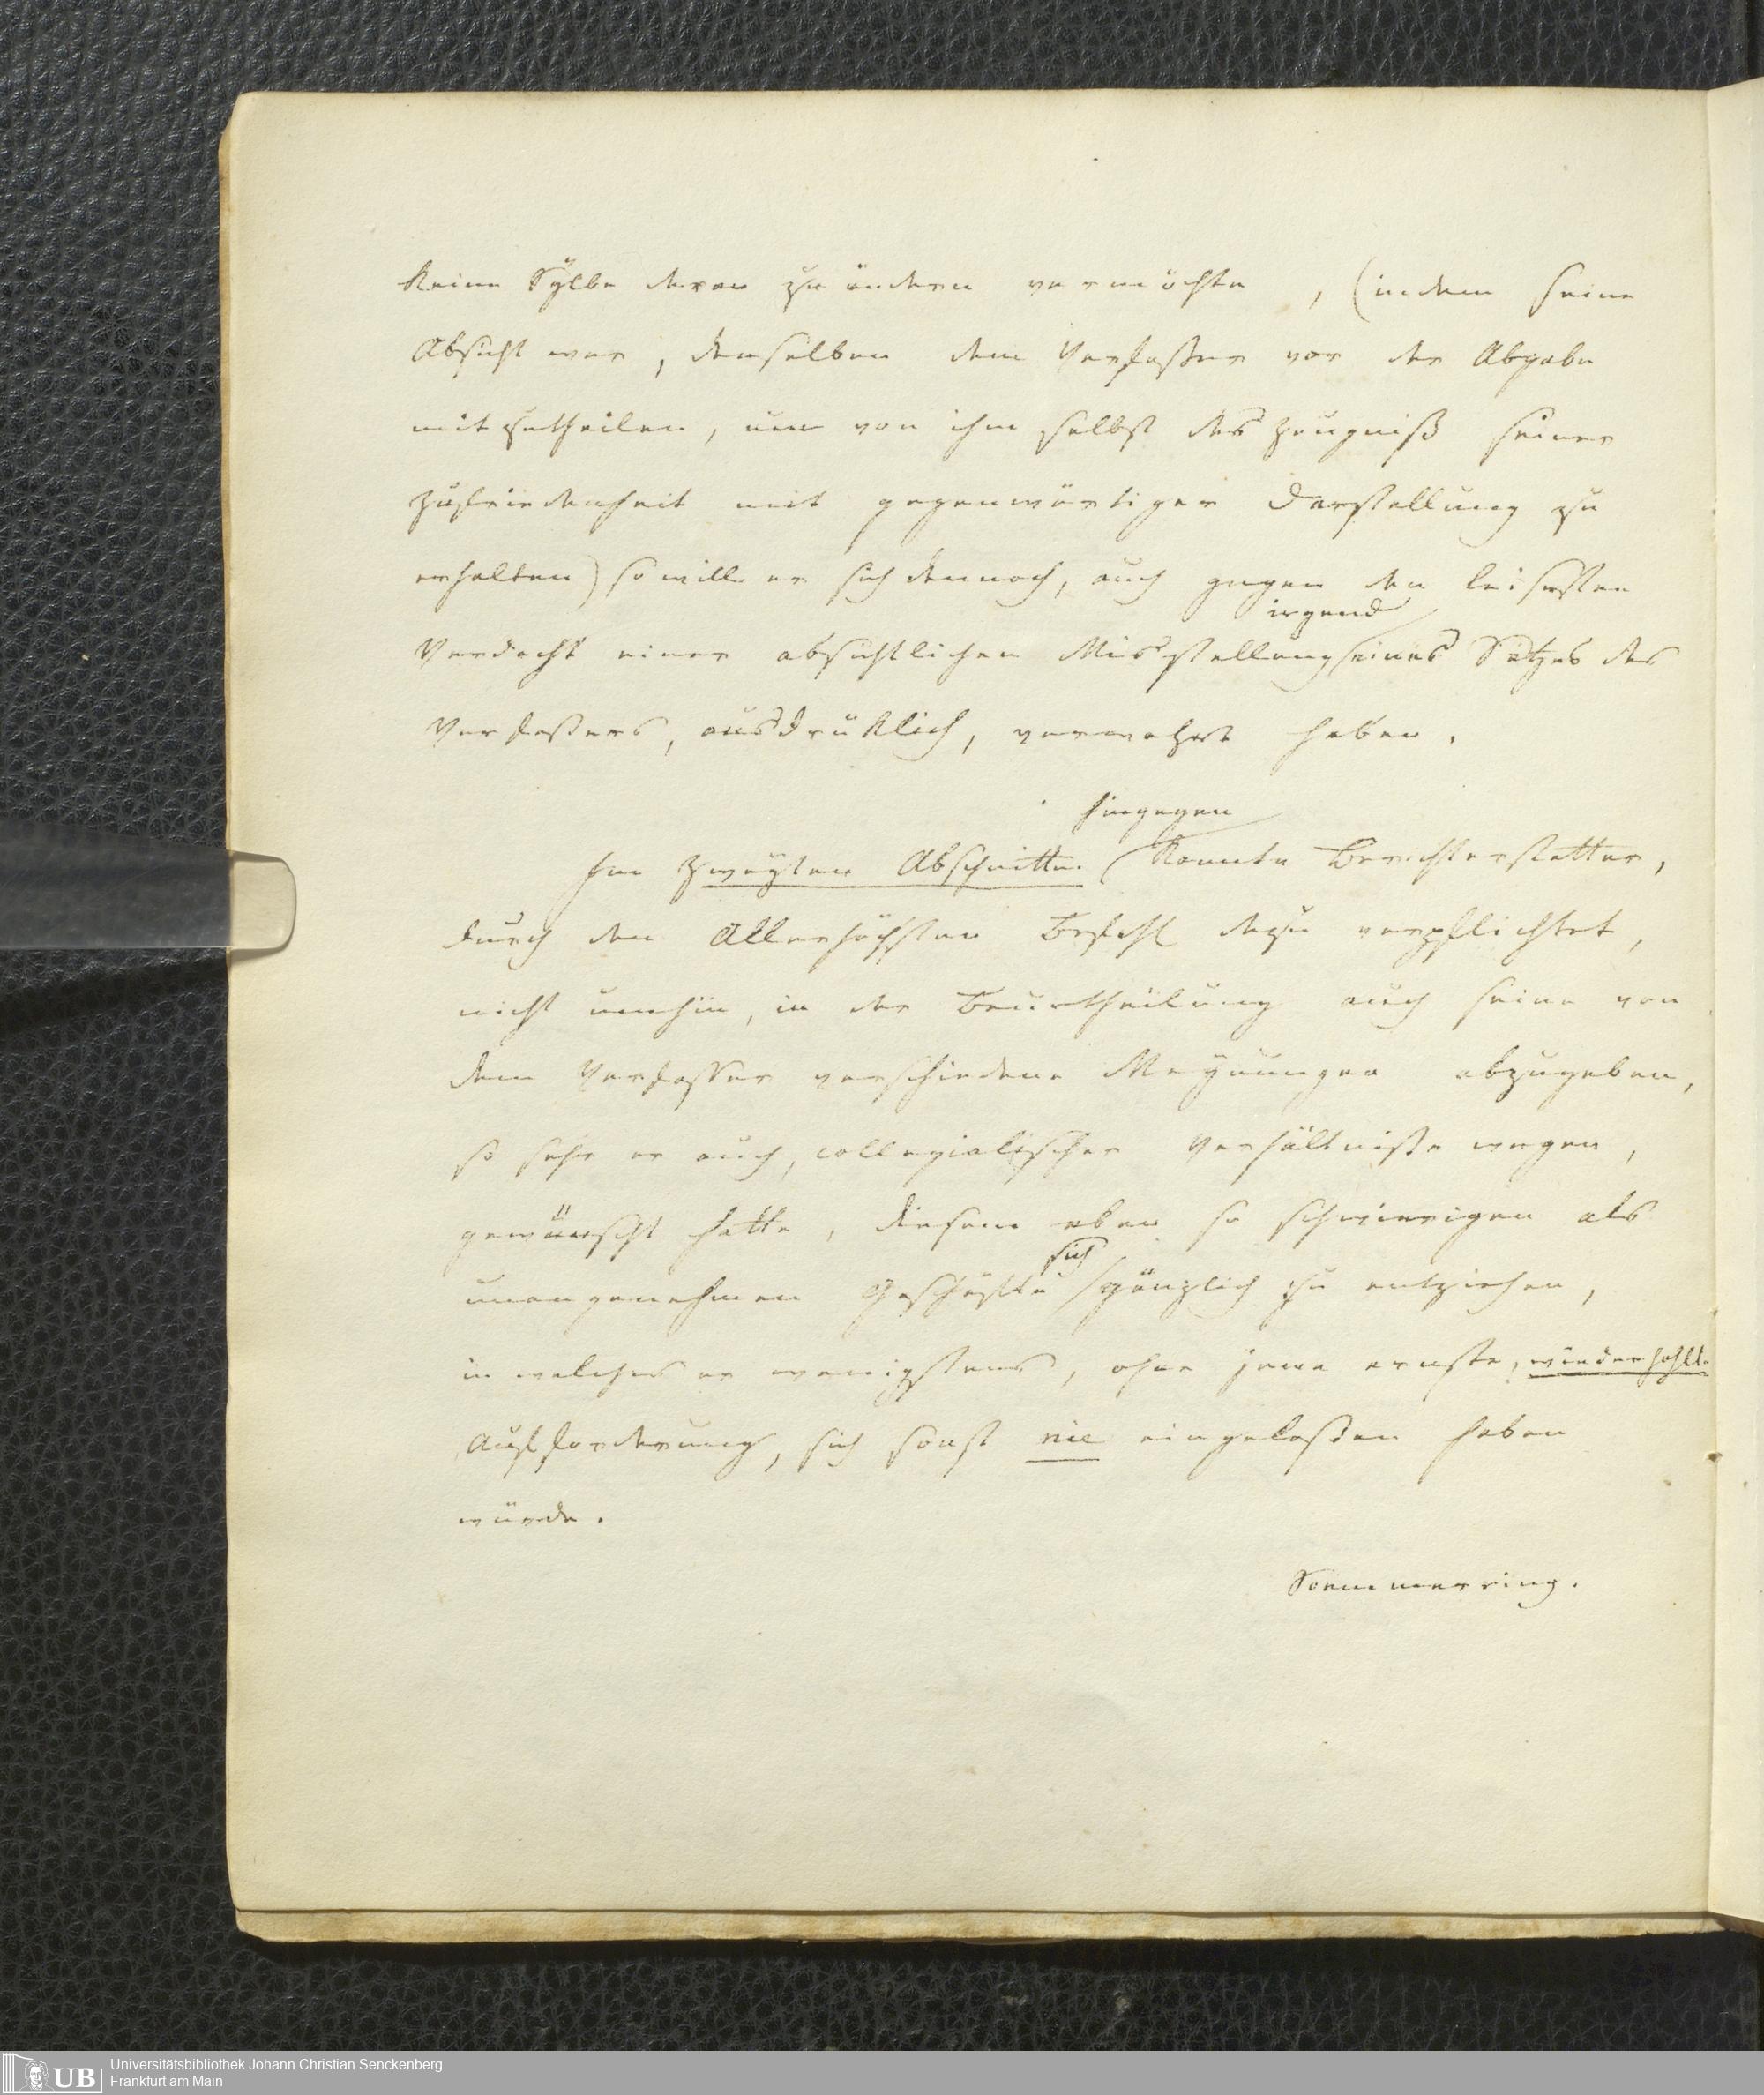 keine Sylbe daran zu ändern vermöchte, (indem seine
Absicht war, denselben dem Verfaßer vor der Abgabe
mitzutheilen, um von ihm selbst das Zeugniß seiner
Zufriedenheit mit gegenwärtiger Darstellung zu
erhalten) so will er sich dennoch, auch gegen den leisesten
irgend
Verdacht einer absichtlichen Misstellung eines Satzes des
Verfaßers, ausdrüklich, verwahrt haben.
hingegen
Im zweyten Abschnitte konnte Berichterstatter,
durch den Allerhöchsten Befehl dazu verpflichtet,
nicht umhin, in der Beurtheilung auch seine von
dem Verfasser verschiedene Meynungen abzugeben,
so sehr er auch, collegialischer Verhältniße wegen,
gewünscht hätte, diesem eben so schwierigen als
sich
unangenehmen Geschäfte gänzlich zu entziehen,
in welches er wenigstens, ohne jene ernste, wiederhohlte
Aufforderung, sich sonst nie eingelaßen haben
würde.
Soemmerring.
UB
Universitätsbibliothek Johann Christian Senckenberg
Frankfurt am Main